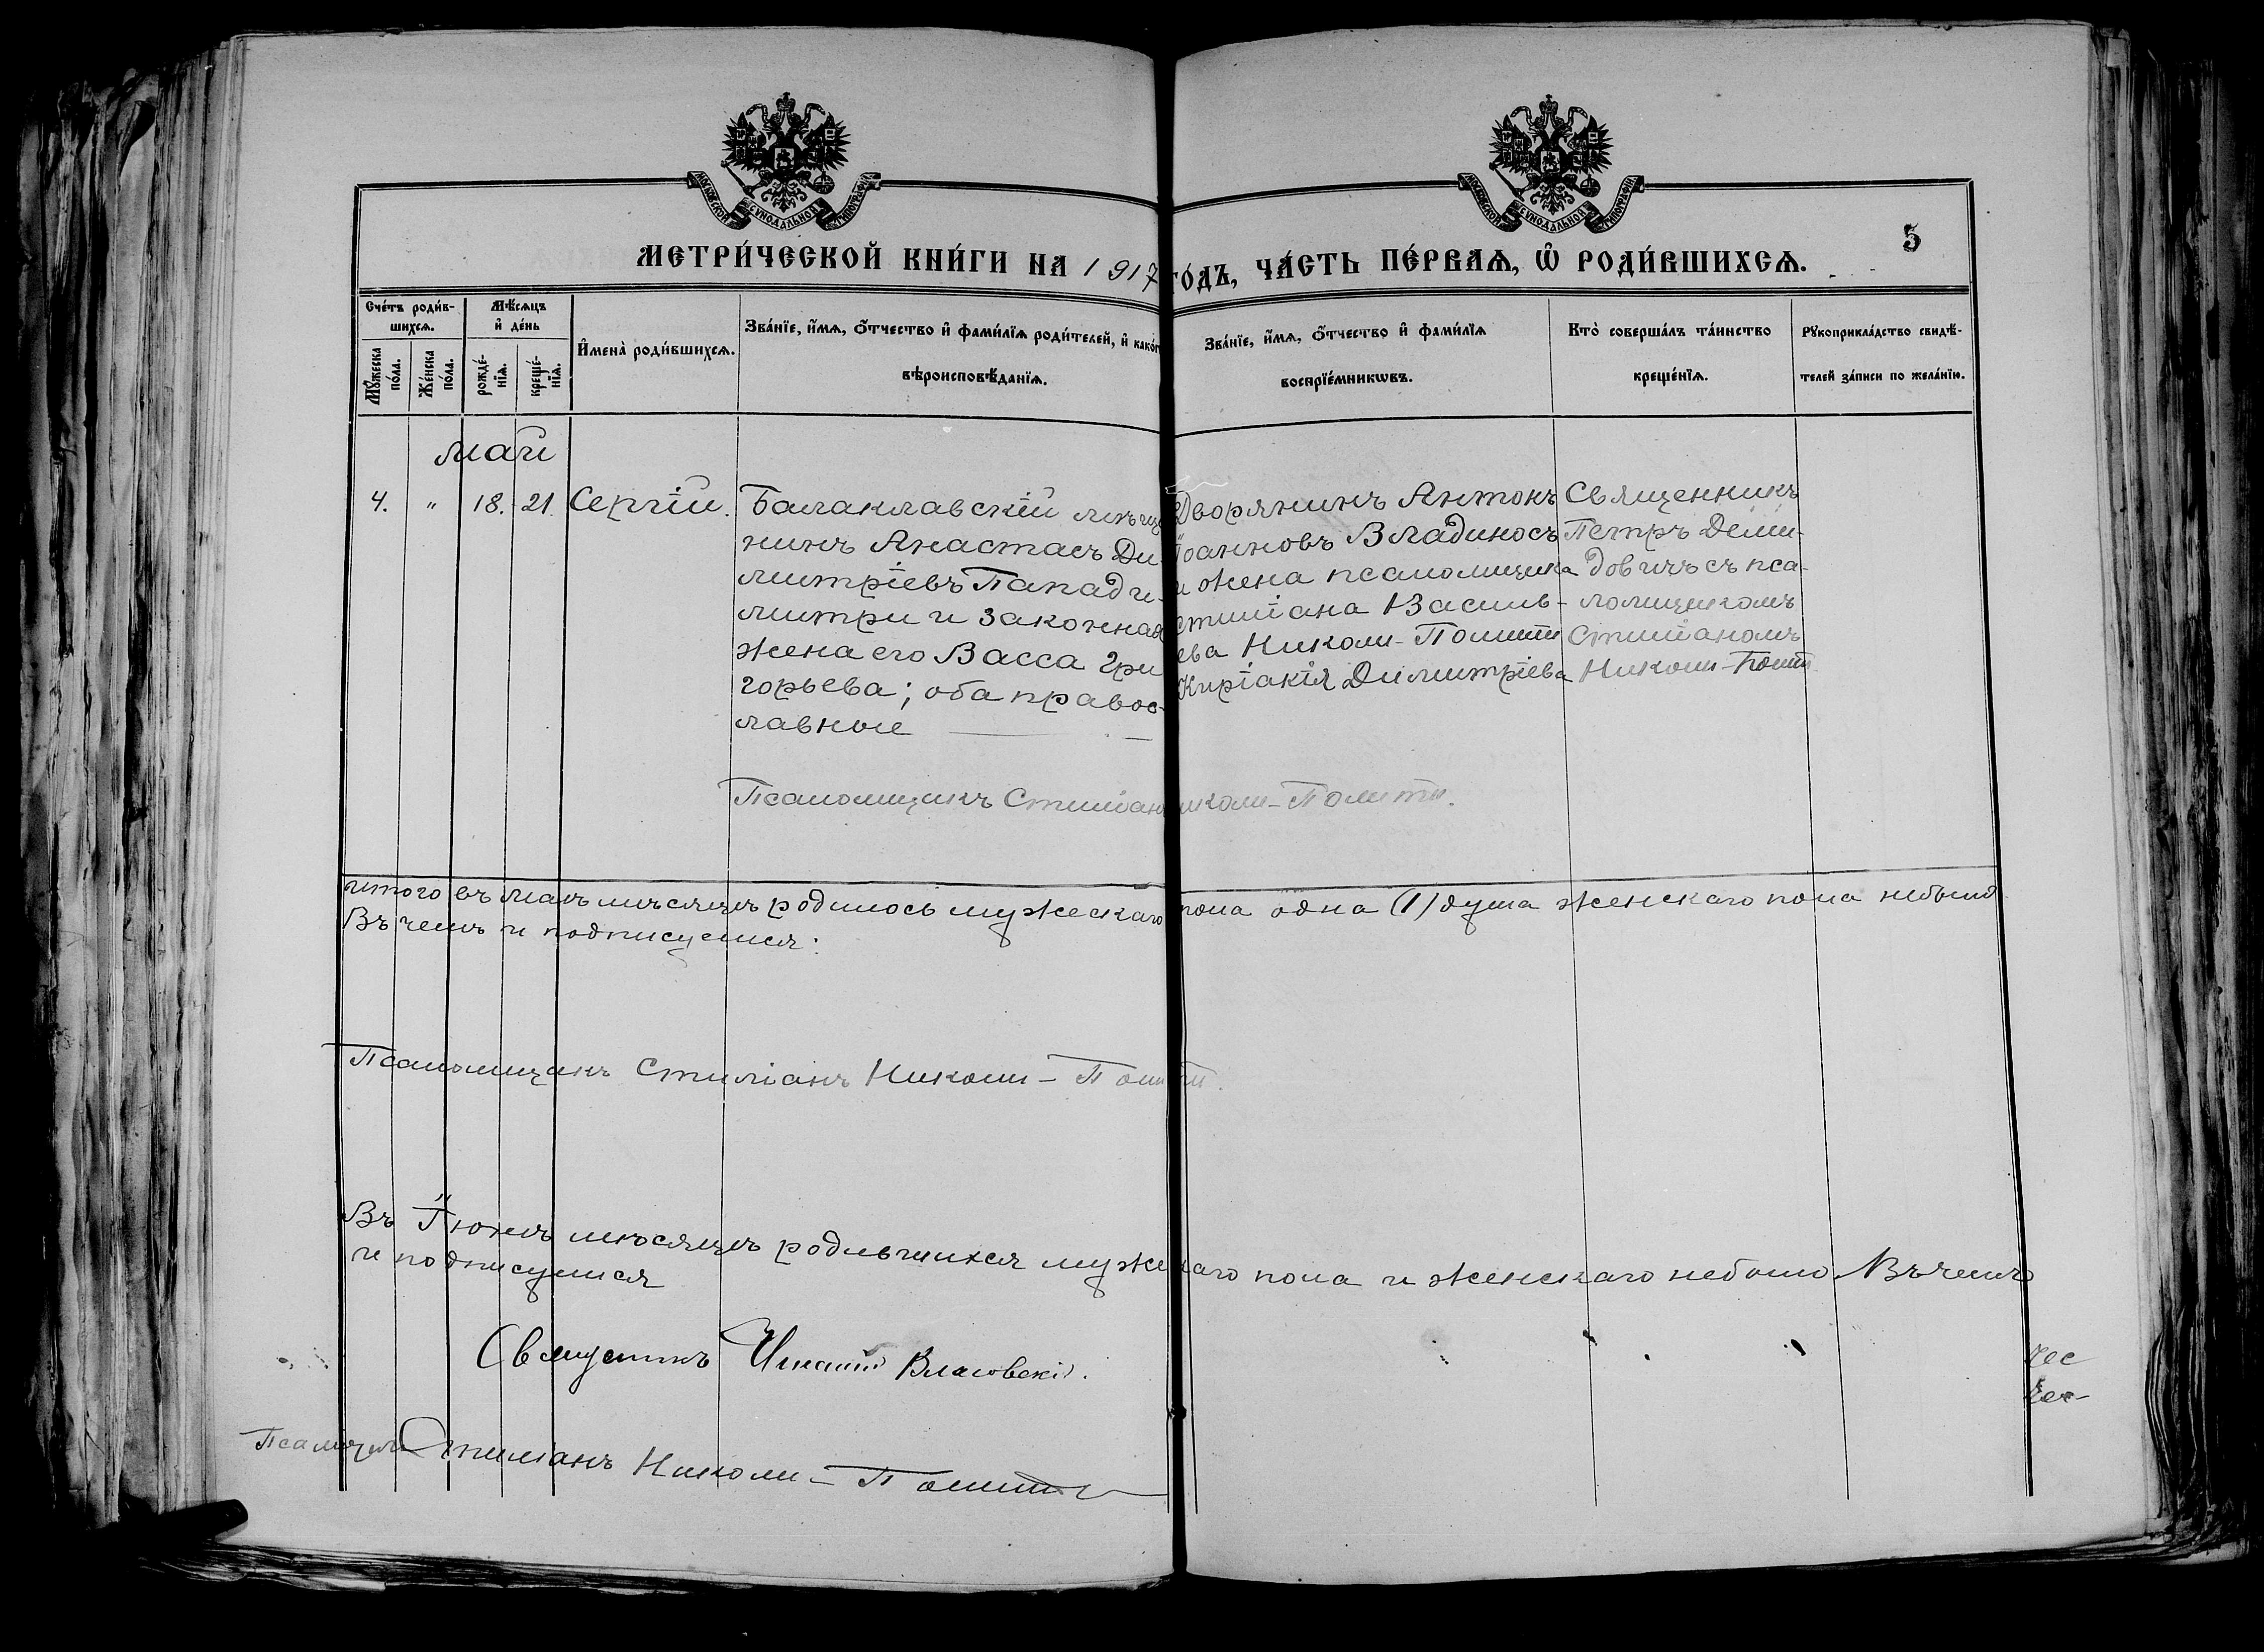 МОСКОВСКОЙ СУНОДАЛЬНОЙ ТИПОГРАФІИ
МОСКОВСКОЙ СУНОДАЛЬНОЙ ТИПОГРАФІИ
МЕТРИ́ЧЕСКОЙ КНИ́ГИ НА 1917
ГО́ДЪ, ЧА́СТЬ ПЕ́РВАѦ, Ѡ҆ РОДИ́ВШИХСѦ.
5
Сче́тъ роди́в-
шихсѧ.
Мꙋ́жеска по́ла.
Же́нска по́ла.
Мѣ́сѧцъ
и҆ де́нь
рожде́-
нїѧ.
креще́-
нїѧ.
И҆мена̀ роди́вшихсѧ.
Зва́нїе, и҆́мѧ, ѻ҆́тчество и҆ фами́лїѧ роди́телей, и҆ како́г
вѣроисповѣ́данїѧ.
Зва́нїе, и҆́мѧ, ѻ҆́тчество и҆ фами́лїѧ
воспрїе́мникѡвъ.
Кто̀ соверша́лъ та́инство
креще́нїѧ.
Рꙋкоприкла́дство свидѣ́-
телей за́писи по жела́нїю.
Май
4. " 18. 21. Сергій.
Балаклавскій мѣща
нинъ Анастасъ Ди-
митріевъ Папади-
митри и законная
жена его Васса Гри
горьева; оба правос-
лавные
Дворянинъ Антонъ
Іоанновъ Владиносъ
и жена псаломщика
Стиліана Василь-
ева Николи-Полити
Киріакія Димитріева
Священникъ
Петръ Деми-
довичъ съ пса-
ломщикомъ
Стиліаномъ
Николи-Полити
Псаломщикъ Стиліанъ Николи-Полити.
Итого въ маѣ мѣсяцѣ родилось мужескаго пола одна (1) душа женскаго пола небыло
Въ чемъ и подписуемся:
Псаломщикъ Стиліанъ Николи-Полити.
Въ Іюнѣ мѣсяцѣ родившихся мужескаго пола и женскаго небыло. Въ чемъ
и подписуемся
Священникъ Власовскій.
Стиліанъ Николи-Полити